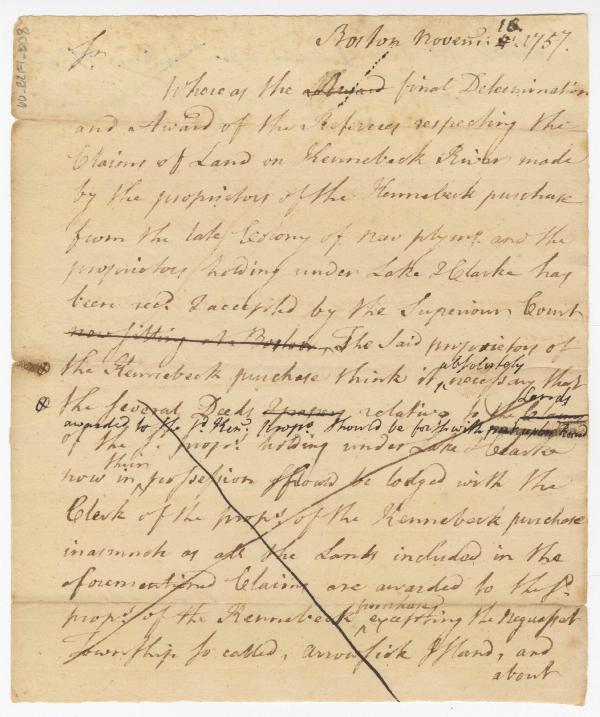 Boston Novem: 18. 1757.
Sr.
Whereas the Award final Determination
and Award of the Referees respecting the
Claims of Land on Kennebeck River made
by the proprietors of the Kennebeck purchase
from the late Colony of new plymo. and the
proprietors holding under Lake & Clarke has
been recd. & accepted by the Superiour Court
now sitting at Boston, The said proprietors of
the Kennebeck purchase think it absolutely necessary that
the several Deeds & papers relative to the Lands
awarded to the sd. Ken: props. should be forthwith put upon Record
of the props. holding under Lake & Clarke
now in their possession should be lodged with the
Clerk of the props. of the Kennebeck purchase
inasmuch as all the Lands included in the
aforementioned Claims are awarded to the sd.
props. of the Kennebeck purchase excepting the Neguasset
Township so called, Arrowsick Island, and
about